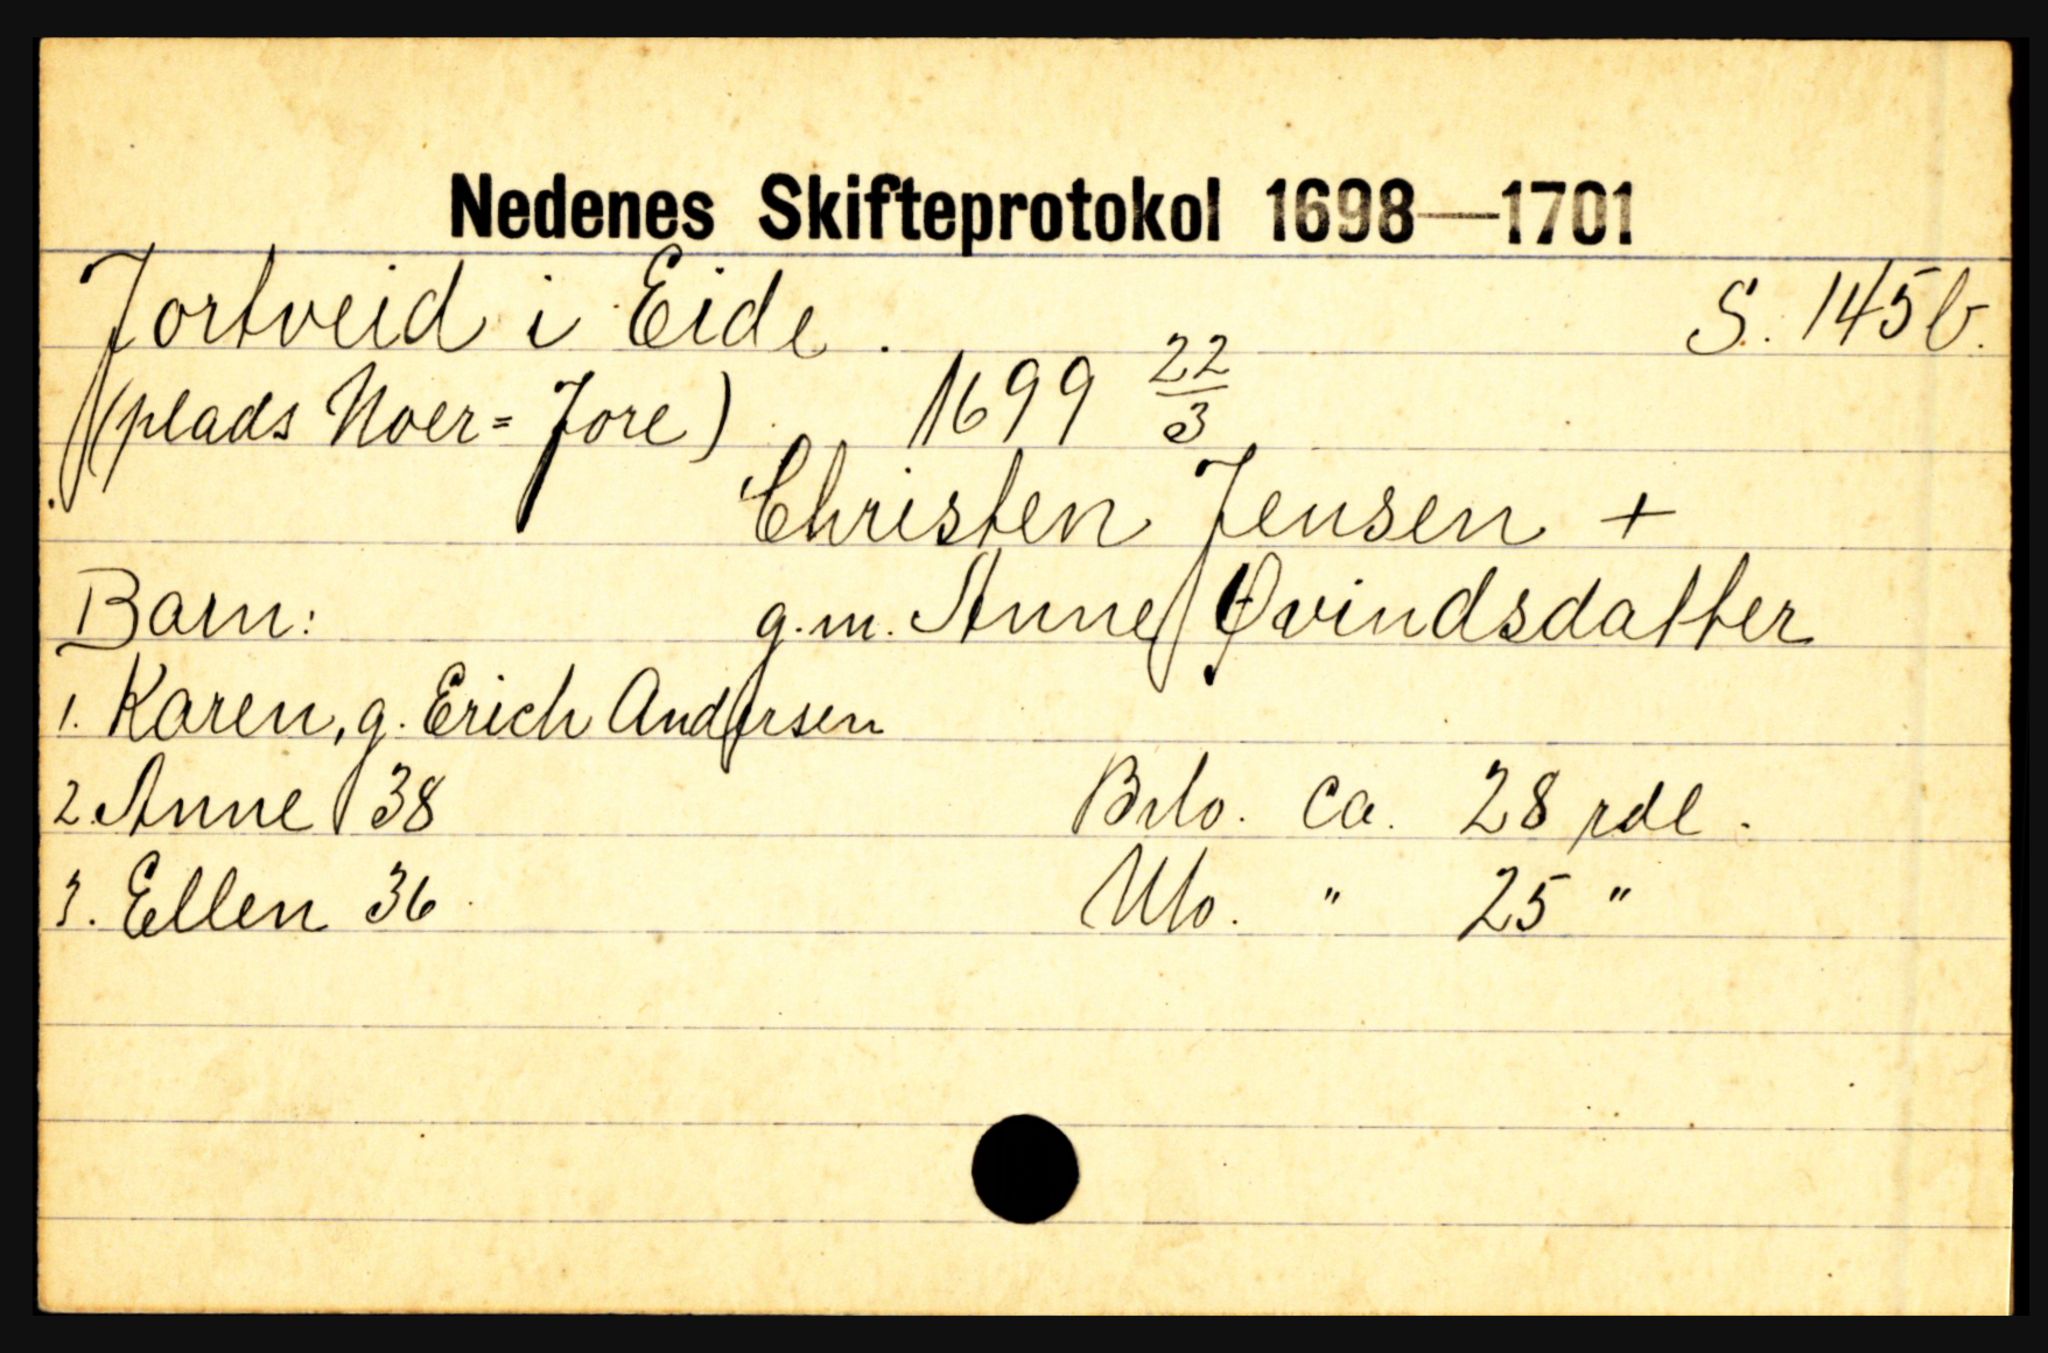 Nedenes Skifteprotokol 1698—1701
Jortveid i Eide. S. 145b.
(plads Noer=Jore) 1699 22/3
Christen Jensen +
Barn: g.m. Anne Øvindsdatter
1. Karen, g. Erich Andersen
2. Anne 38 Brlo. ca. 28 rdl.
3. Ellen 36 Nlo. " 25 "